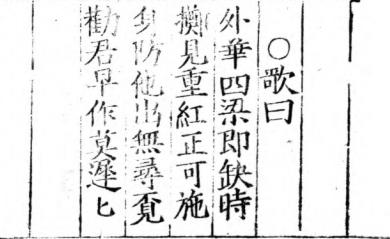 ○歌曰
外華四梁即缺時
擲見重紅正可施
身防他出無尋覔
勸君早作莫遲匕